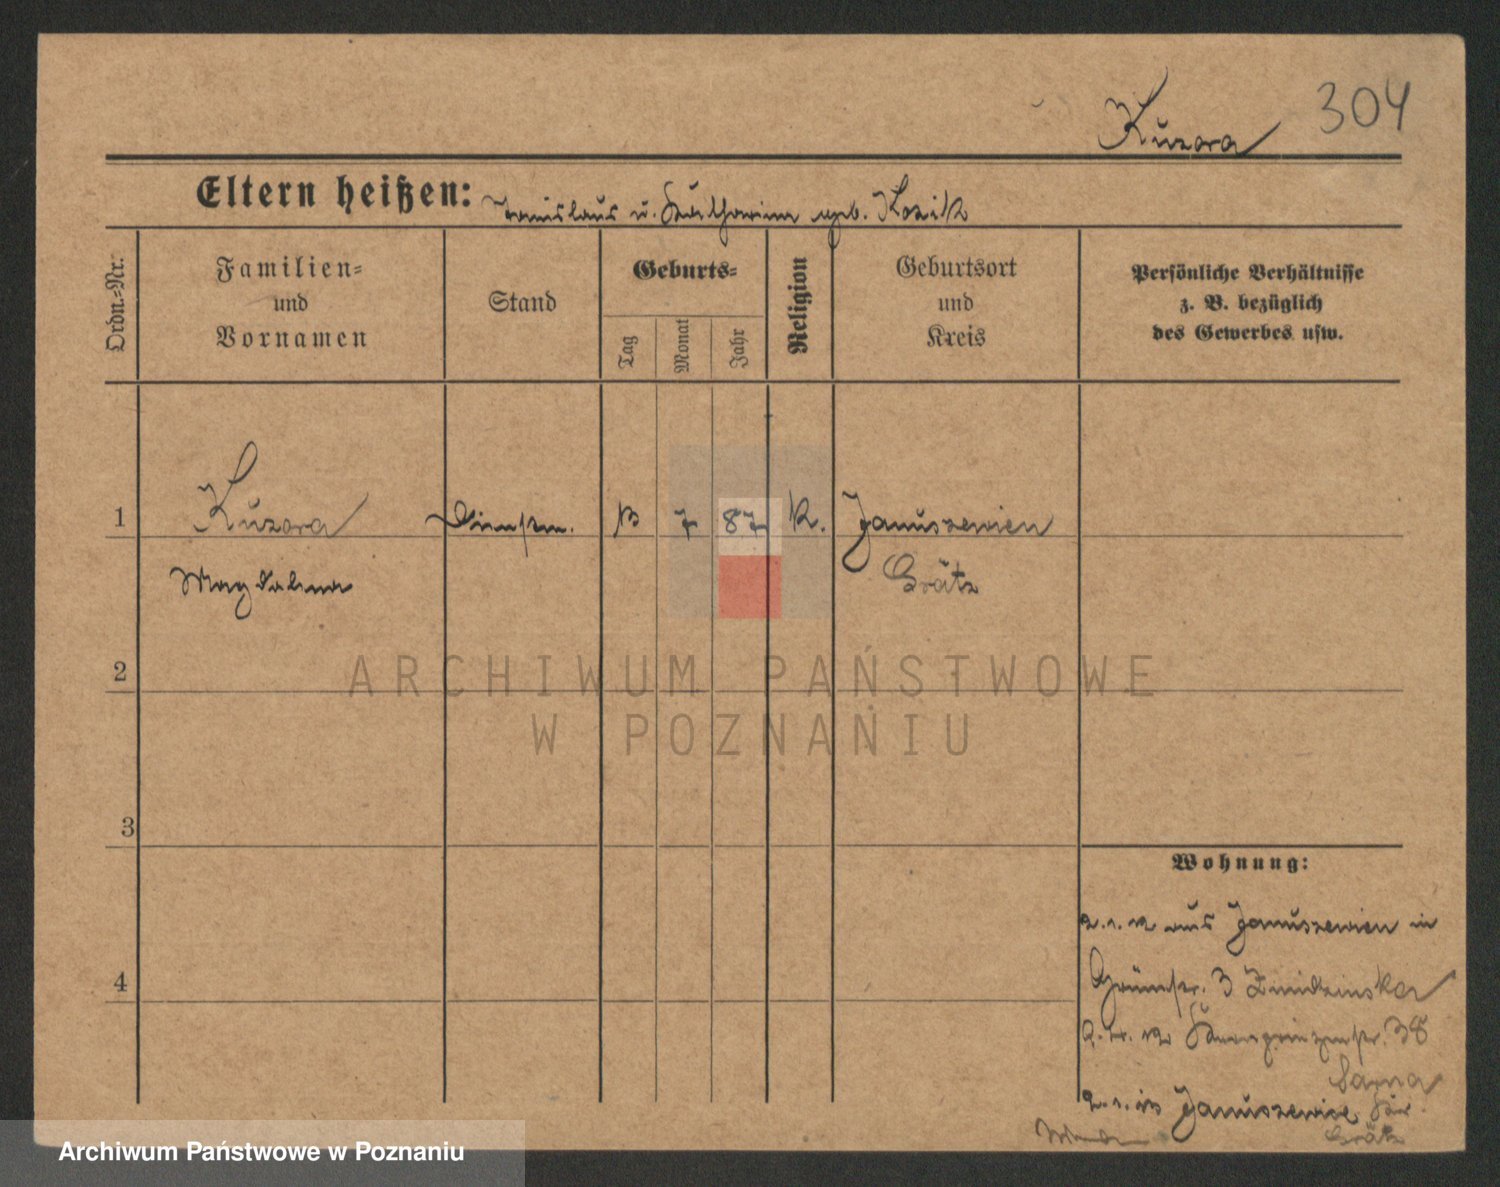 304
Kuzora
Eltern heißen: Stanislaus u. Katharina geb. Kozik
Ordn.-Nr.
Familien-
und
Vornamen
Stand
Geburts-
Tag
Monat
Jahr
Religion
Geburtsort
und
Kreis
Persönliche Verhältnisse
z. B. bezüglich
des Gewerbes usw.
1 Kuzora 7 87 K. Januszewien
Magdalena Grätz
2
3
4
Wohnung:
aus Januszewien in
3
38
Sarna
Januszewice Kr.
Grätz
ARCHIWUM PAŃSTWOWE
W POZNANIU
Archiwum Państwowe w Poznaniu